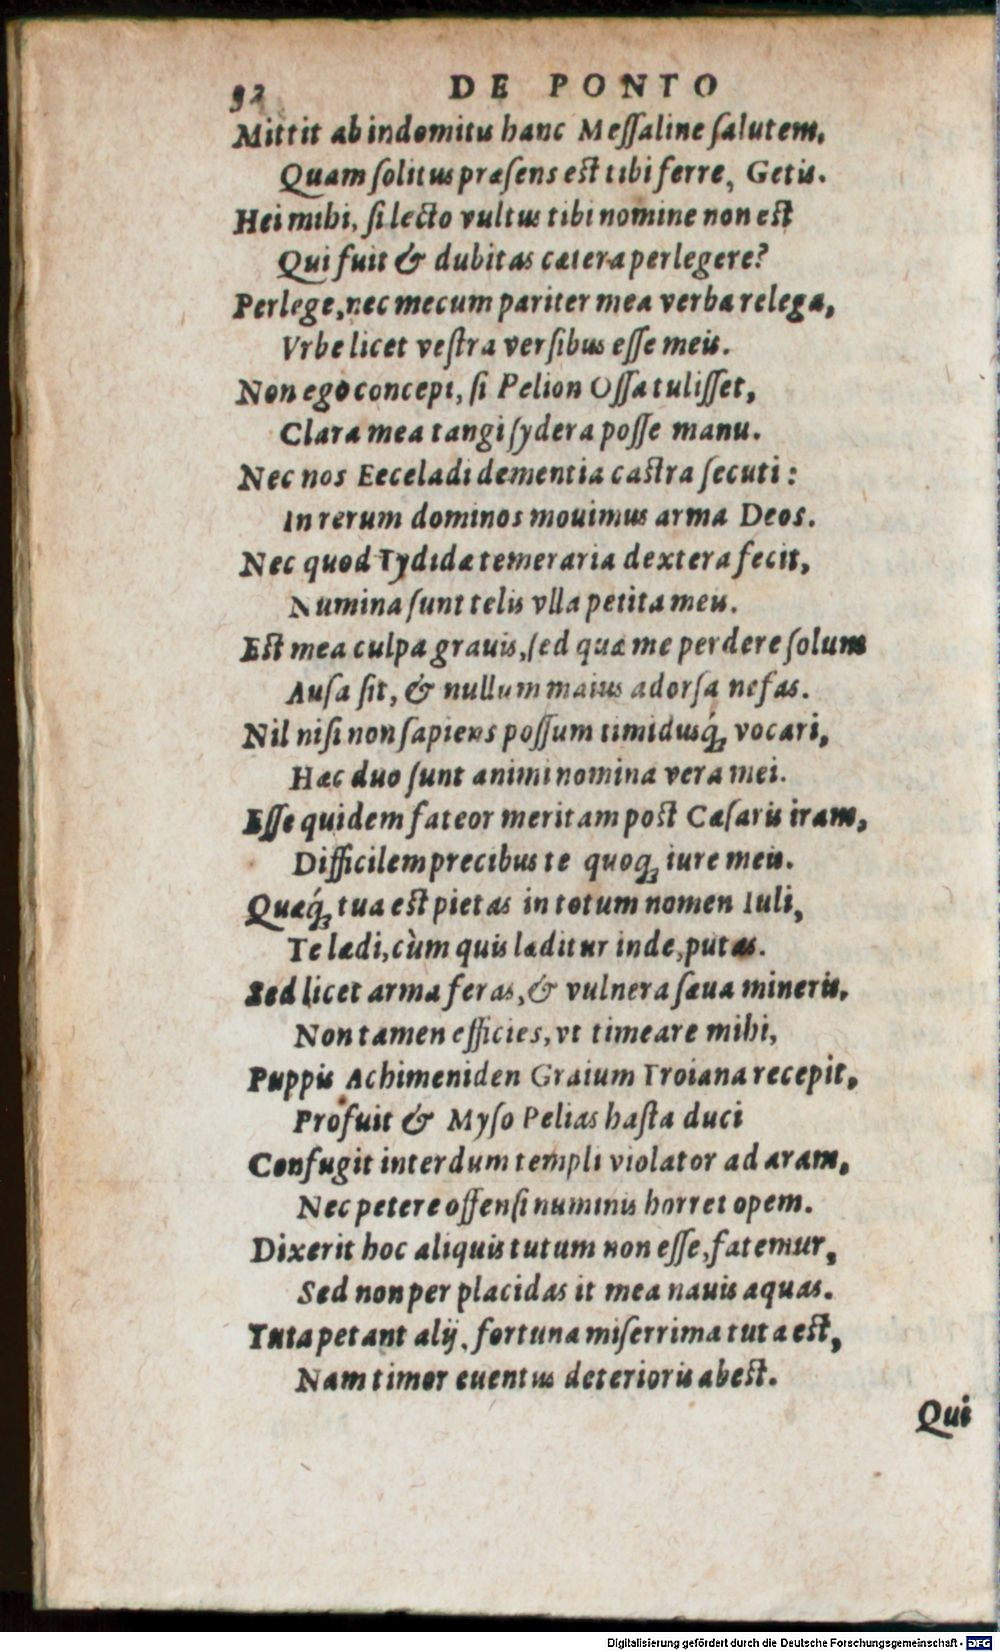 92 DE PONTO
Mittit ab indomitis hanc Meſſaline ſalutem,
Quam ſolitus præſens eſt tibi ferre, Getis.
Hei mihi, ſi lecto vultus tibi nomine non eſt
Qui fuit & dubitas cætera perlegere?
Perlege, nec mecum pariter mea verba relega,
Vrbe licet veſtra verſibus eſſe meis.
Non ego concepi, ſi Pelion Oſſa tuliſſet,
Clara mea tangi ſydera poſſe manu.
Nec nos Eeceladi dementia caſtra ſecuti:
In rerum dominos mouimus arma Deos.
Nec quod Tydidæ temeraria dextera fecit,
Numina ſunt telis vlla petita meis.
Eſt mea culpa grauis, ſed quæ me perdere ſolum
Auſa ſit, & nullum maius adorſa nefas.
Nil niſi non ſapiens poſſum timidusq́; vocari,
Hæc duo ſunt animi nomina vera mei.
Eſſe quidem fateor meritam poſt Cæſaris iram,
Difficilem precibus te quoq; iure meis.
Quæq́; tua eſt pietas in totum nomen Iuli,
Te lædi, cùm quis læditur inde, putas.
Sed licet arma feras, & vulnera ſæua mineris,
Non tamen efficies, vt timeare mihi,
Puppis Achimeniden Graium Troiana recepit,
Profuit & Myſo Pelias haſta duci
Confugit interdum templi violator ad aram,
Nec petere offenſi numinis horret opem.
Dixerit hoc aliquis tutum non eſſe, fatemur,
Sed non per placidas it mea nauis aquas.
Tuta petant alij, fortuna miſerrima tuta eſt,
Nam timor euentus deterioris abeſt.
Qui
Digitalisierung gefördert durch die Deutsche Forschungsgemeinschaft - DFG